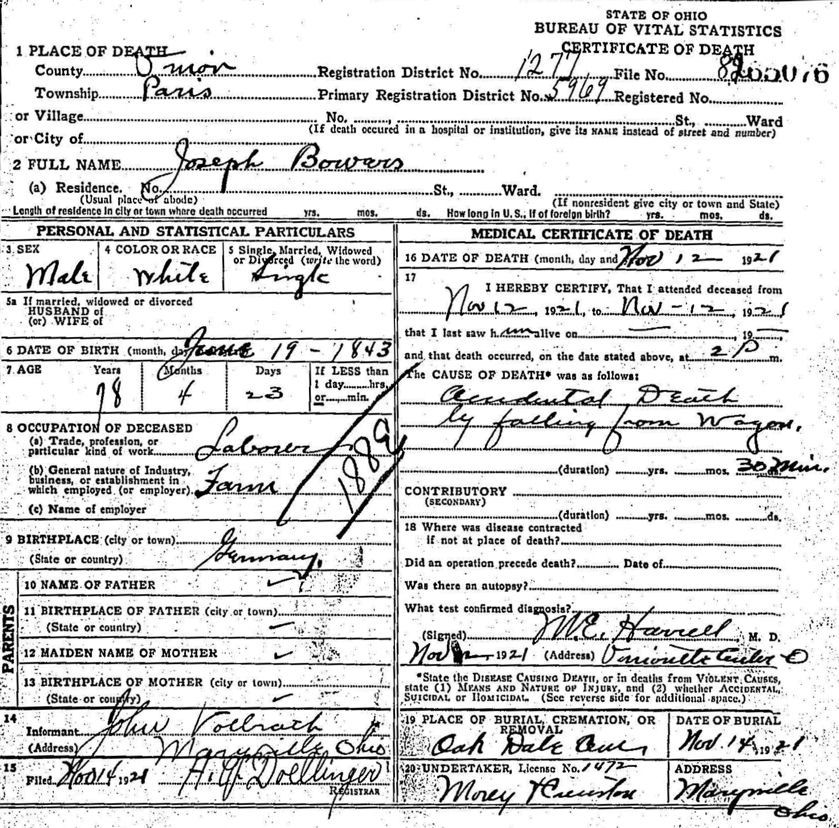 STATE OF OHIO
BUREAU OF VITAL STATISTICS
CERTIFICATE OF DEATH
1 PLACE OF DEATH
County Union Registration District No. 1277 File No.
Township Paris Primary Registration District No. 5969 Registered No.
or Village No. , St., Ward
(If death occured in a hospital or institution, give its NAME instead of street and number)
or City of
2 FULL NAME Joseph Bowars
(a) Residence. No. St., Ward.
(Usual place of abode) (If nonresident give city or town and State)
Length of residence in city or town where death occurred yrs. mos. ds. How long in U.S., if of foreign birth? yrs. mos. ds.
PERSONAL AND STATISTICAL PARTICULARS
3 SEX 4 COLOR OR RACE 5 Single, Married, Widowed
or Divorced (write the word)
Male White Single
5a If married, widowed or divorced
HUSBAND of
(or) WIFE of
6 DATE OF BIRTH (month, day June 19 - 1843
7 AGE Years Months Days If LESS than
1 day hrs.
or min.
78 4 23
8 OCCUPATION OF DECEASED
(a) Trade, profession, or
particular kind of work Laborer
(b) General nature of Industry,
business, or establishment in
which employed (or employer) Farm
(c) Name of employer
1889
9 BIRTHPLACE (city or town)
(State or country) Germany.
PARENTS
10 NAME OF FATHER
11 BIRTHPLACE OF FATHER (city or town)
(State or country)
12 MAIDEN NAME OF MOTHER
13 BIRTHPLACE OF MOTHER (city or town)
(State or country)
14
Informant John Vollrath
(Address) Marysville Ohio
15
Filed Nov 14 1921 Doellinger
REGISTRAR
MEDICAL CERTIFICATE OF DEATH
16 DATE OF DEATH (month, day and Nov 12 1921
17
I HEREBY CERTIFY, That I attended deceased from
Nov 12, 1921, to Nov - 12, 1921
that I last saw him alive on — 19 —
and that death occurred, on the date stated above, at 2 P m.
The CAUSE OF DEATH* was as follows:
Accidental Death
by falling from Wagon.
(duration) yrs. mos. 30 Min.
CONTRIBUTORY
(SECONDARY)
(duration) yrs. mos. ds.
18 Where was disease contracted
if not at place of death?
Did an operation precede death? Date of
Was there an autopsy?
What test confirmed diagnosis?
(Signed) M. D.
Nov 12, 1921 (Address) O
*State the DISEASE CAUSING DEATH, or in deaths from VIOLENT CAUSES,
state (1) MEANS AND NATURE OF INJURY, and (2) whether ACCIDENTAL,
SUICIDAL or HOMICIDAL. (See reverse side for additional space.)
19 PLACE OF BURIAL, CREMATION, OR
REMOVAL
DATE OF BURIAL
Oak Dale Cem Nov. 14, 1921
20 UNDERTAKER, License No. 1472 ADDRESS
Marysville
Ohio